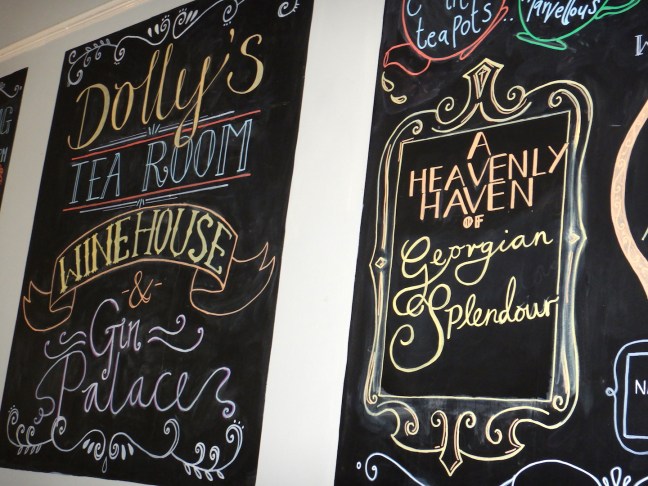 Dolly's
TEA ROOM
WINE HOUSE
-&-
Gin
Palace
teapots
marvellous
A
HEAVENLY
HAVEN
OF
Georgian
Splendour
NA